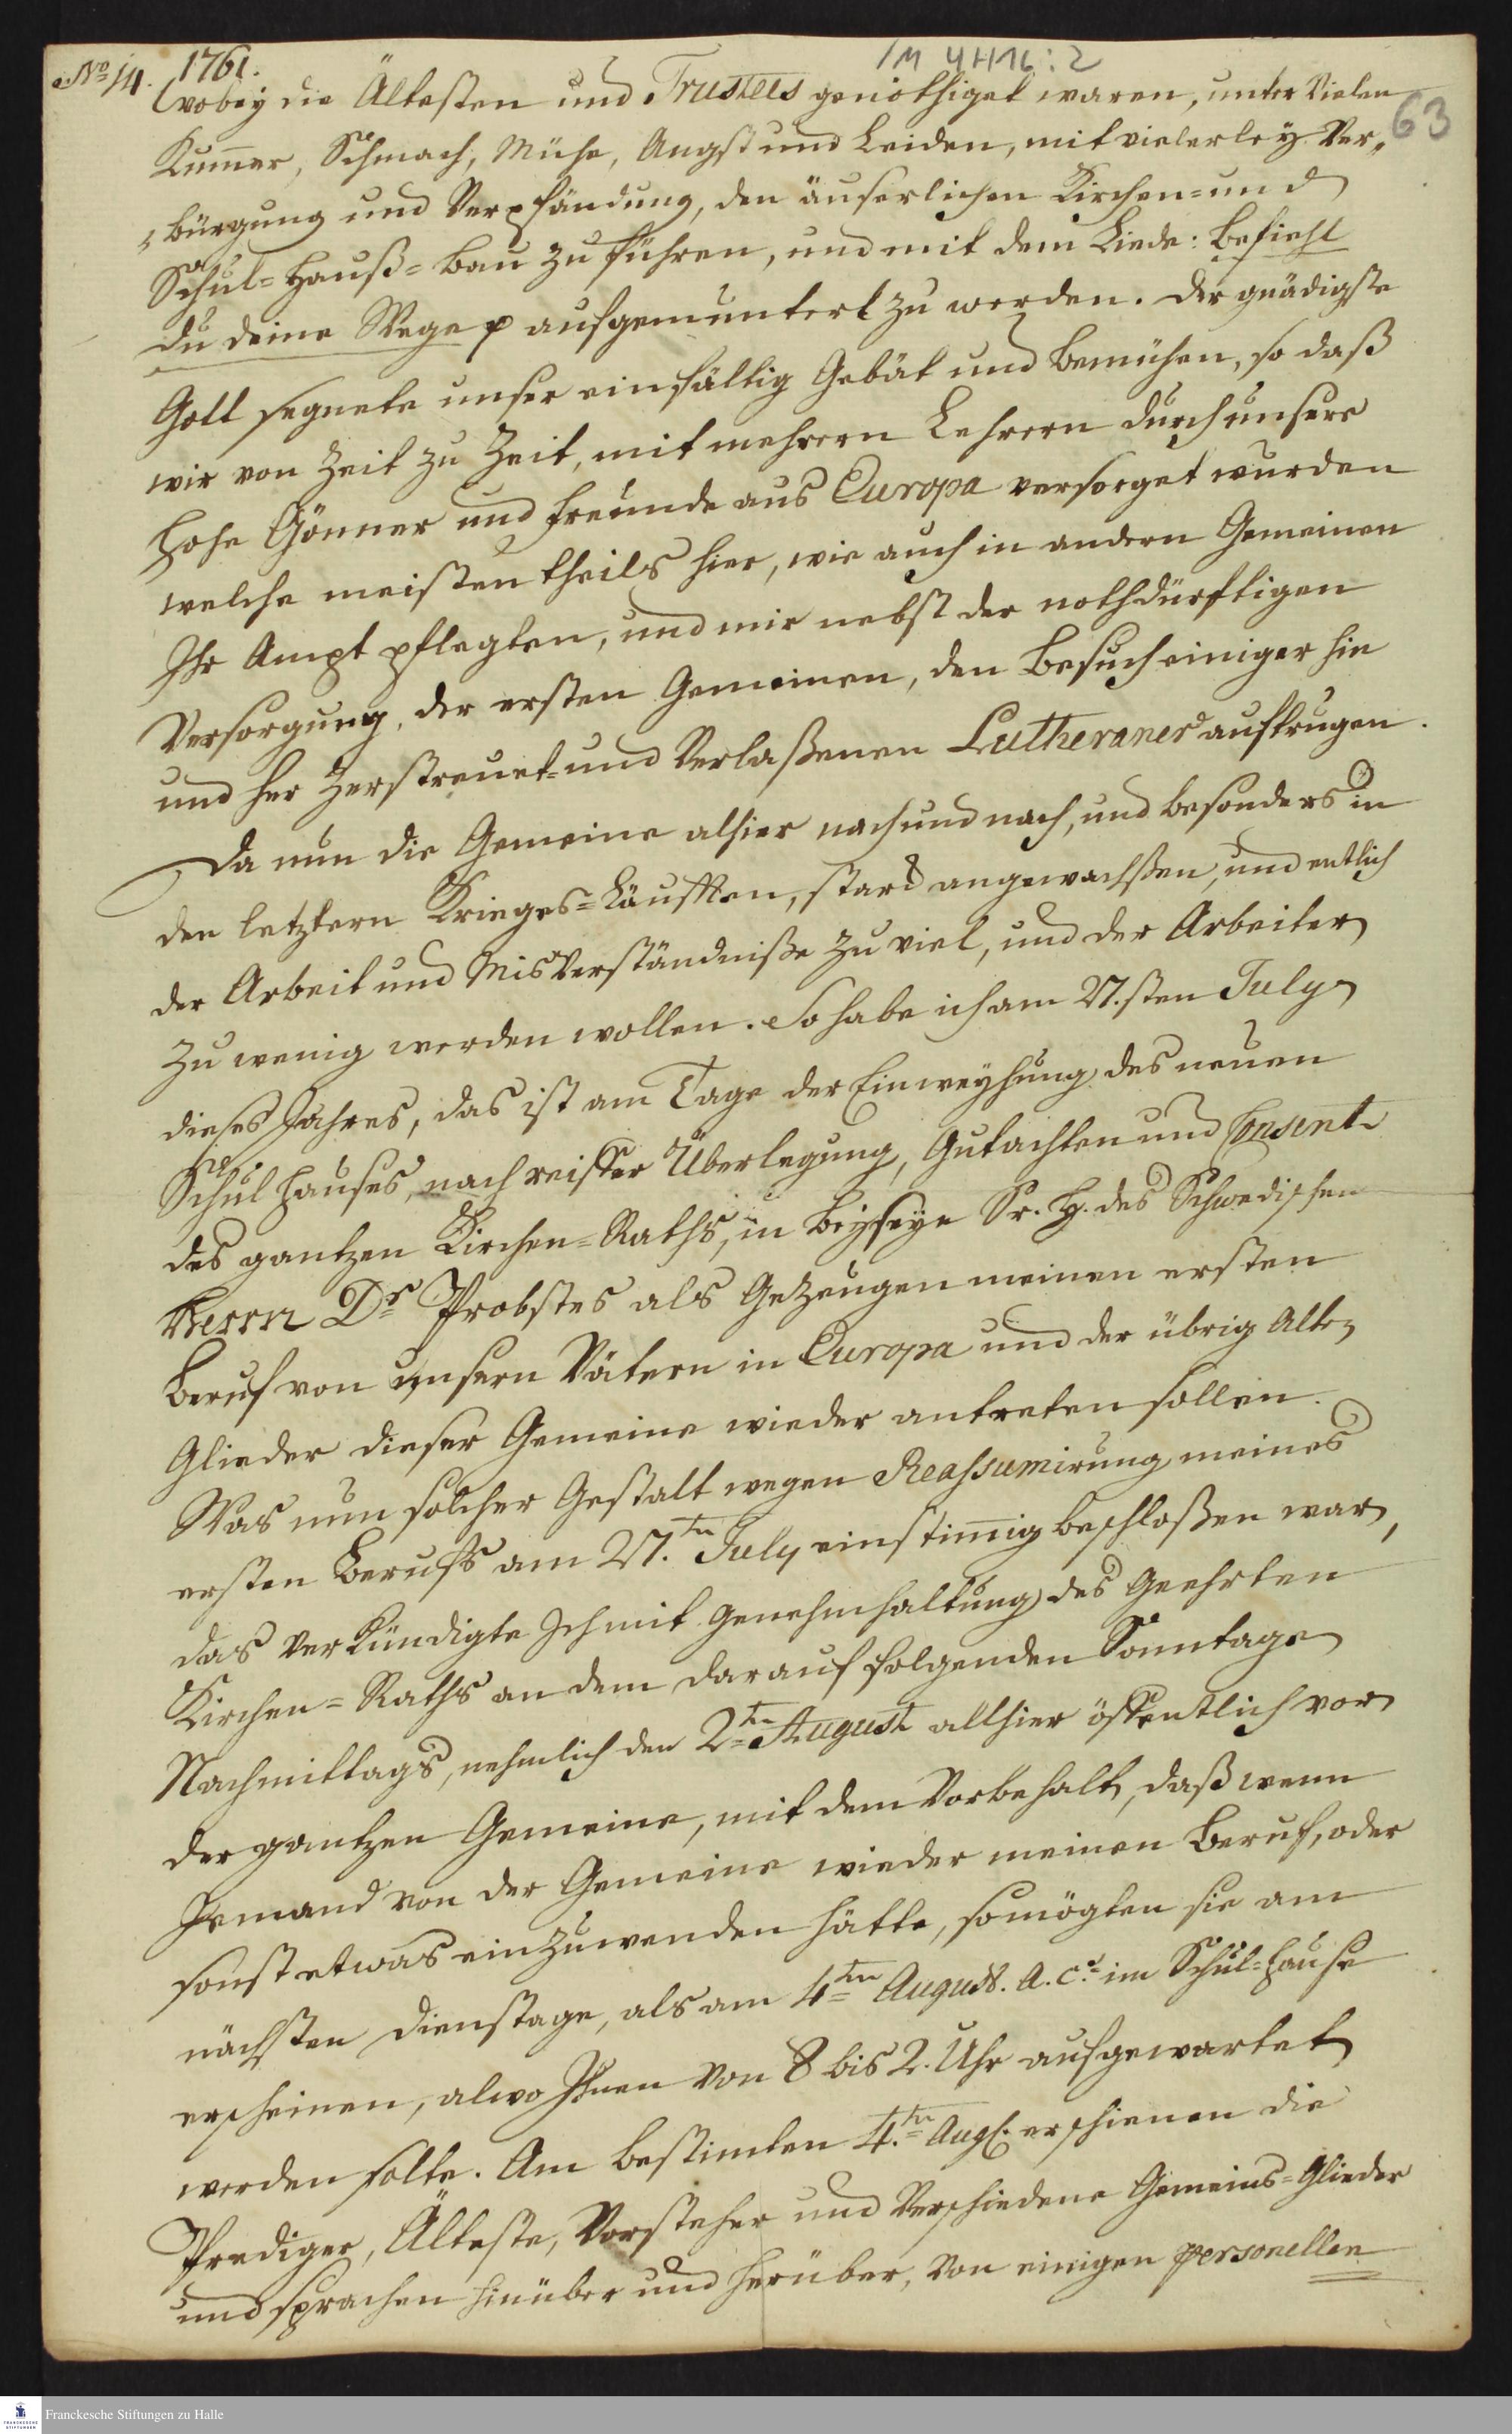 /M 4H16:2
63
No 14. 1761.
wobey die Ältesten und Trustees genöthiget waren, unter vielen
Kummer, Schmach, Mühe, Angst und Leiden, mit vielerley Ver„
„bürgung und Verpfändung, den äuserlichen Kirchen= und
Schul=Hauß=Bau zu führen, und mit dem Liede: Befiehl
du deine Wege p aufgemuntert zu werden. Der gnädigste
Gott segnete unser einfältig Gebät und Bemühen, so daß
wir von Zeit zu Zeit, mit mehrern Lehrern durch unsere
Hohe Gönner und Freunde aus Europa versorget wurden
welche meistentheils hier, wie auch in andern Gemeinen
Ihr Ampt pflegten, und mir nebst der nothdürftigen
Versorgung, der ersten Gemeinen, den Besuch einiger hin
und her Zerstreuet= und Verlaßenen Lutheraner auftrugen.
Da nun die Gemeine alhier nach und nach, und besonders in
den letztern Krieges=Läufften, starck angewachßen, und entlich
der Arbeit und Misverständniße zu viel, und der Arbeiter
zu wenig werden wollen. So habe ich am 27.sten July
dieses Jahres, das ist am Tage der Einweyhung des neuen
Schul Hauses, nach reiffer Überlegung, Gutachten und Consent
des gantzen Kirchen=Raths, in Beyseyn Sr. H. des Schwedischen
Herrn Dr Probstes als Gezeugen meinen ersten
Beruf von unsern Vätern in Europa und der übrig Alten
Glieder dieser Gemeine wieder antreten sollen.
Was nun solcher Gestalt wegen Reassumirung meines
ersten Berufs am 27.ten July einstimig beschloßen war,
das verkündigte Ich mit Genehmhaltung des Geehrten
Kirchen=Raths an dem darauf folgenden Sonntage
Nachmittags, nehmlich den 2ten August allhier öffentlich vor
der gantzen Gemeine, mit dem Vorbehalt, daß wenn
Jemand von der Gemeine wieder meinen Beruf, oder
sonst etwas einzuwenden hätte, so mögten sie am
nächsten Dienstage, als am 4ten August. A. c. im Schul=Hause
erscheinen, alwo Ihnen von 8 bis 2. Uhr aufgewartet
werden solte. Am bestimten 4.ten Augs. erschienen die
Prediger, Älteste, Vorsteher und verschiedene Gemeins=Glieder
und sprachen hinüber und herüber, von einigen personellen
Franckesche Stiftungen zu Halle